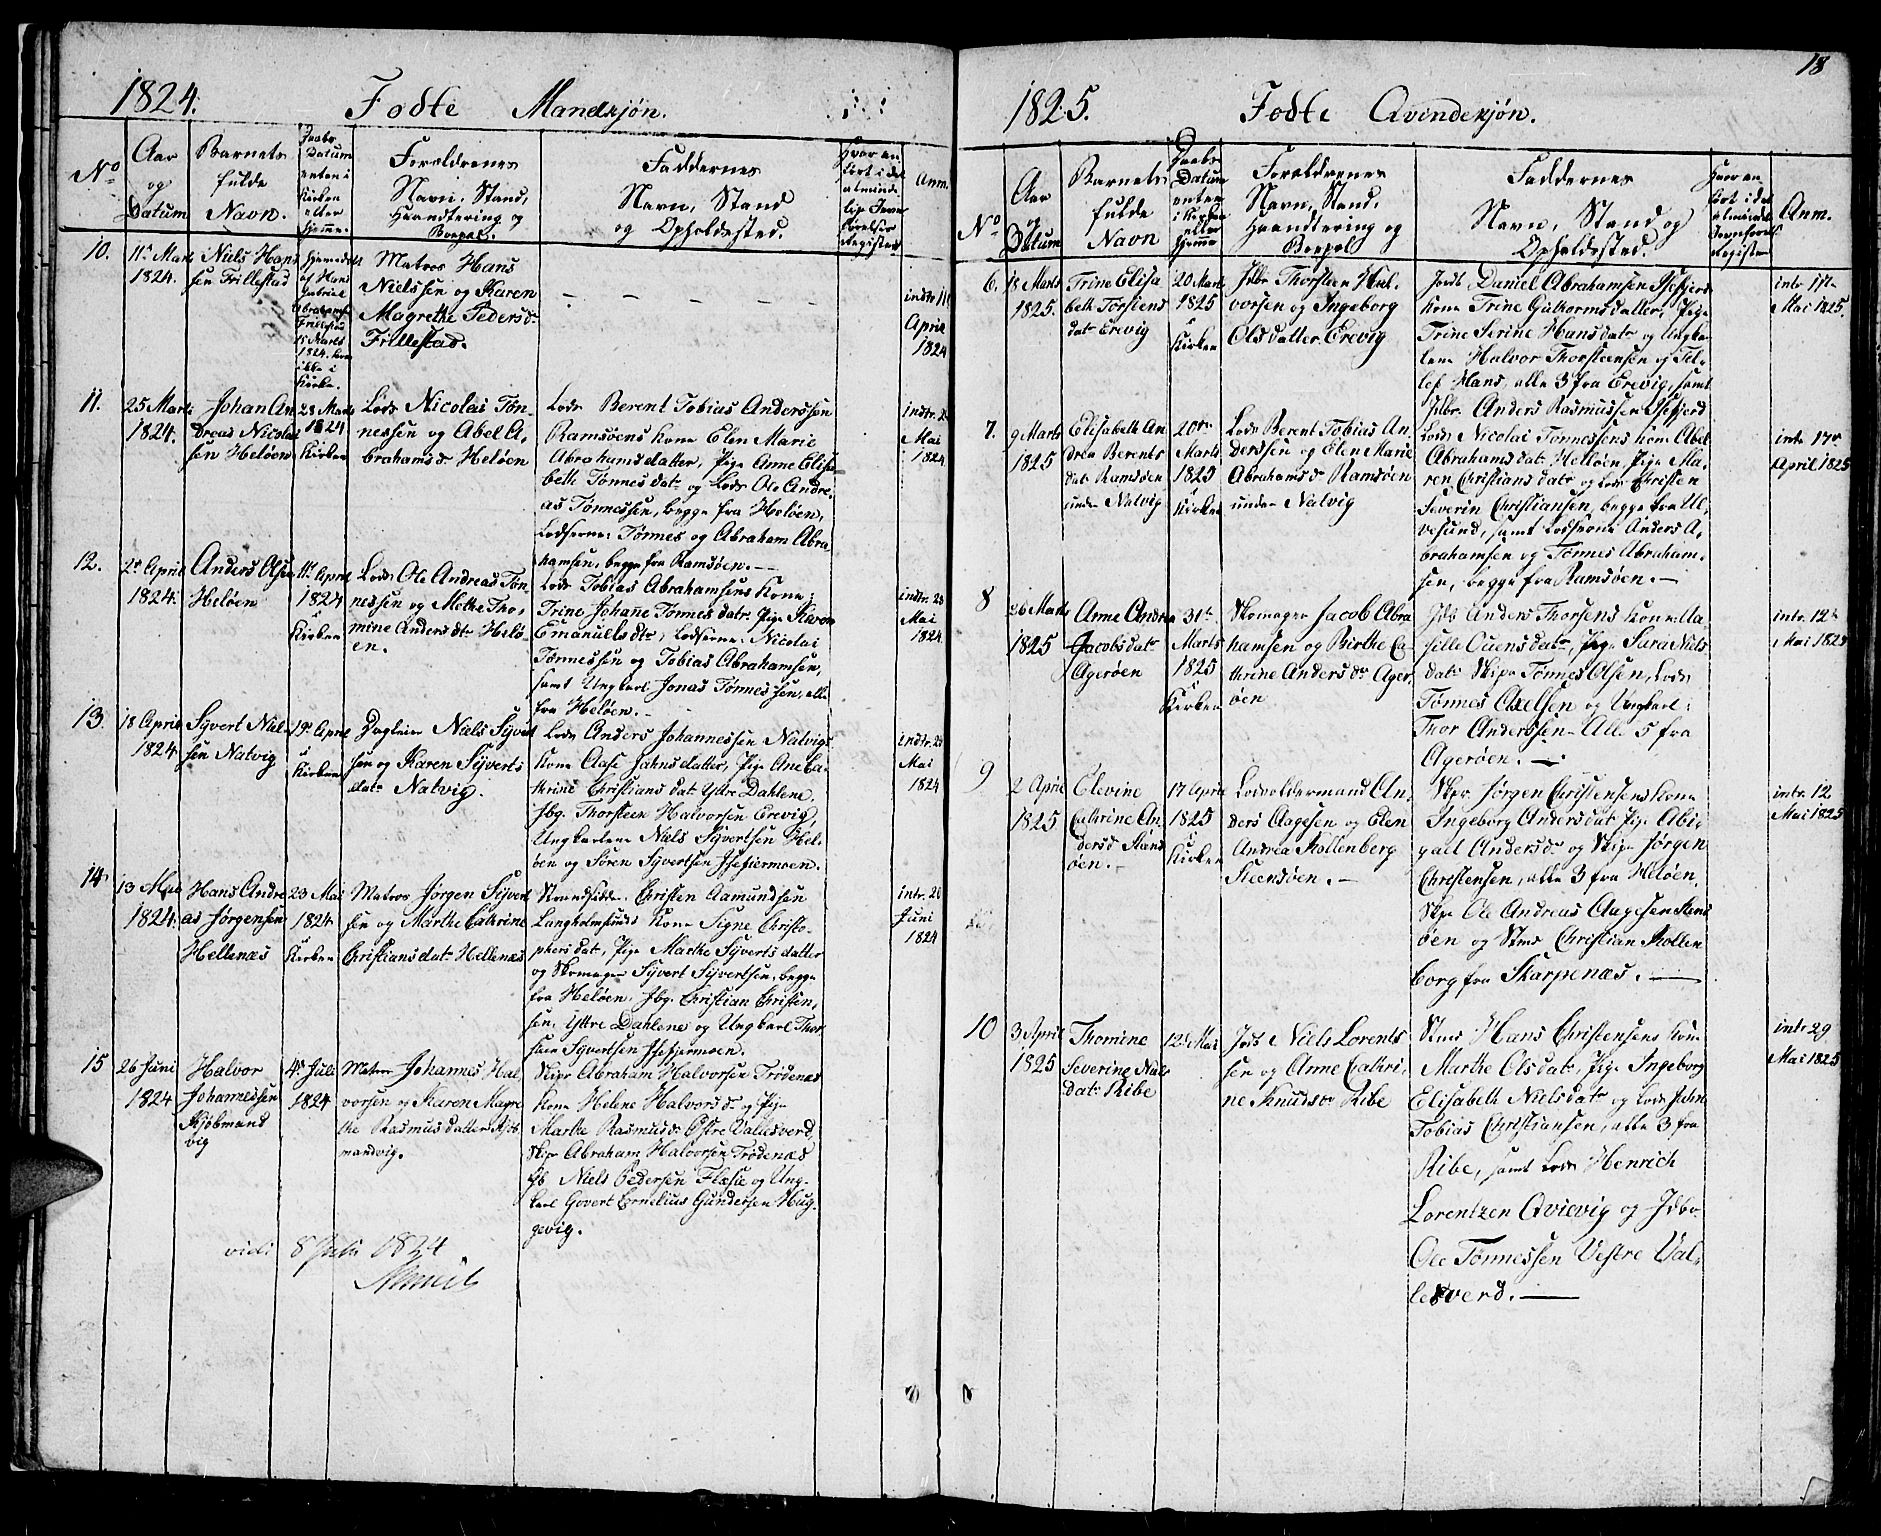 1824.
Fødte Mandkjøn.
No
Aar
og
Datum
Barnets
fulde
Navn.
Daabs
Datum
enten i
Kirken
eller
Hjemme.
Forældrenes
Navn, Stand,
Haandtering og
Bopæl.
Faddernes
Navn, Stand
og Opholdssted.
Hvor an
ført i det
alminde
lige Jevn
førelses
Register
Anm.
10.
11te Marts
1824.
Niels Hans
sen Frillestad
Hjemedøbt
af Hans
Gabriel
Abrahams
Frillestad
15 Marts
1824.
ikke i
Kirke.
Matros Hans
Nielssen og Karen
Magrethe Peders Dr
Frillestad.
indtr 11te
April
1824
11.
25 Marts
1824.
Johan An
dreas Nicolai
sen Heløen
28 Marts
1824
i
Kirken
Lods Nicolai Tøn-
nessen og Abel A,
brahams Dr Heløen
Lods Berent Tobias Anderssen
Ramsøens Kone Elen Marie
Abrahamsdatter, Pige Anne Elisa
beth Tønnes datr og Lods Ole Andre,
as Tønnessen, begge fra Heløen,
Lodserne: Tønnes og Abraham Abra
hamsen, begge fra Ramsøen.—
indtr. 2
Mai
1824
12.
2de April
1824.
Anders Olsen
Heløen
11te April
1824
i
Kirken
Lods Ole Andreas Tøn
nessen og Mette Tho,
mine Anders dtr Helø-
en.
Lods Tobias Abrahamsens Kone:
Trine Johane Tønnes datr. Pige Karen
Emanuels dtr, Lodserne: Nicolai
Tønnessen og Tobias Abrahamsen,
samt Ungkarl Jonas Tønnessen, alle
fra Heløen.—
indtr. 23
Mai
1824
13.
18 April
1824
Syvert Niel-
sen Natvig
19de April
i
Kirken
Dagleier Niels Syvert
sen og Karen Syverts
datr Natvig.
Lods Anders Johannessen Natvigs
Kone Aase Jahnsdatter, Pige Ane Ca-
thrine Christians datr Yttre Dahlene,
Jbg. Thorsteen Halvorsen Erevig,
Ungkarlene Niels Syvertsen Hel-
øen og Søren Syvertsen Isefiermoen.
indtr. 23
Mai
1824
14
13 Mai
1824.
Hans Andre
as Jørgensen
Hellenæs
23 Mai
1824
i
Kirken
Matros Jørgen Syvert
sen og Marthe Cathrine
Christians datr Hellenæs
Strandsidder Christen Aamundsen
Langholmsunds Kone Signe Christo-
phers datr, Pige Marthe Syverts datter
og Skomager Syvert Syvertsen, begge
fra Heløen. Jbg. Christian Christen,
sen, Yttre Dahlene og Ungkarl Thor
steen Syvertsen Isefjermoen.
intr. 20
Juni
1824
15
26 Juni
1824
Halvor
Johannessen
Kjøbmand
vig
4de Juli
1824
Matros Johannes Hal
vorsen og Karen Magre
the Rasmusdatter Kjøb
mandvig.
Skipr Abraham Halvorsen Trødenæs
Kone Helene Halvors Dr og Pige
Marthe Rasmus Dr Østre Vallesverd,
Skipr Abraham Halvorsen Trødenæs
Jb Niels Pedersen Flæsie og Ung-
karl Govert Cornelius Gundersen Hug-
gevig.
vidi 8 Juli 1824
1825.
Fødte Qvindekjøn.
18
No
Aar
og
Datum
Barnets
fulde
Navn
Daabs
Datum
enten
i Kirken
eller
Hjemme
Forældrenes
Navn, Stand,
Haandtering og
Bopæl
Faddernes
Navn, Stand og
Opholdssted.
Hvor an
ført i det
alminde
Jevnførel
Register
Anm.
6.
18 Marts
1825.
Trine Elisa
beth Torstens
datr Erevig
20 Mart
1825
i
Kirken
Jdbr Thorsteen Hal-
vorsen og Ingeborg
Olsdatter. Erevig
Jordb Daniel Abrahamsen Isefjerds
Kone Trine Guthormsdatter, Pige
Trine Serine Hans datr og Ungkar
lene Halvor Thorsteensen og Tel-
lef Hans, alle 3 fra Erevig, samt
Jdbr. Anders Rasmussen Isefjerd
7.
9 Marts
1825
Elisabeth An
drea Berents
datr Ramsøen
under Natvig
20de
Marts
1825
i
Kirken
Lods Berent Tobias An
derssen og Elen Marie
Abrahams Dr Ramsøen
under Natvig
Lods Nicolai Tønnessens Kone Abel
Abrahams datr Helløen, Pige Ma-
ren Christians datr og Lods Christen
Severin Christiansen, begge fra Ul,
vesund, samt Lodserne Anders A,
brahamsen og Tønnes Abraham-
sen, begge fra Ramsøen.—
intr 17de
April 1825
intr 17de
Mai 1825.
8
26 Marts
1825
Anne Andrea
Jacobs datr
Agerøen
31te
Marts
1825
i
Kirken
Skomager Jacob Abra
hamsen og Birthe Ca-
thrine Anders Dr Ager,
øen
Jdb Anders Thorsens Kone Aa-
sille Ouens datr, Pige Sara Niels
datr Skipr Tønnes Olsen, Lods
Tønnes Axelsen og Ungkarl:
Thor Anderssen. Alle 5 fra
Agerøen.—
intr. 12te
Mai 1825
9
2 April
1825
Elevine
Cathrine An
dersd Steens
øen.—
17 April
1825
i
Kirken
Lodsoldermand An,
ders Aagesen og Elen
Andrea Stollenberg
Steensøen.—
Skpr. Jørgen Christensens Kone
Ingeborg Anders datr Pige Abi-
gael Anders Dr og Skipr Jørgen
Christensen, alle 3 fra Heløen.
Skpr Ole Andreas Aagesen Steens
øen og Stmd Christian Stollen
borg fra Skarpenæs.—
intr. 12
Mai 1825
10
3 April
1825
Thomine
Severine Niels
datr Ribe
12te Mai
Jordb Niels Lorents
sen og Anne Cathri-
ne Knuds Dr Ribe
Stmd Hans Christensens Kone
Marthe Ols datr, Pige Ingeborg
Elisabeth Niels datr og Lods John
Tobias Christiansen, alle 3 fra
Ribe, samt Lods Henrich
Lorentzen Qvievig og Jdbr
Ole Tønnessen Vestre Val-
lesverd.—
intr 29
Mai 1825